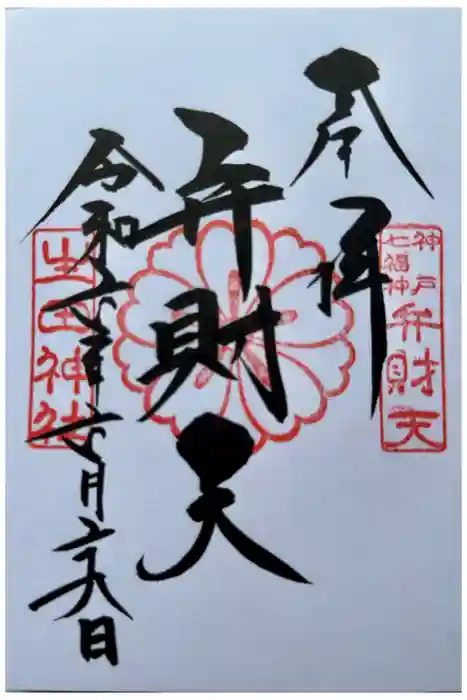 神戸
七福神
弁財天
奉拝
弁財天
令和六年六月二十八日
生田神社